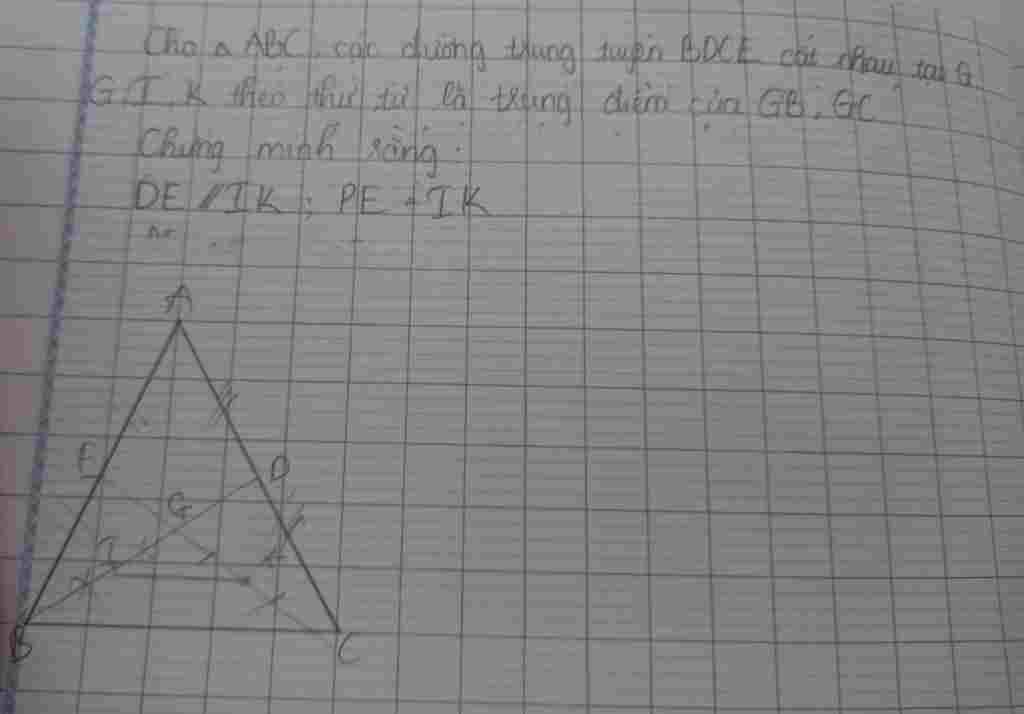 Cho Δ ABC, các đường trung tuyến BD,CE cắt nhau tại G
G,I, K theo thứ tự là trung điểm của GB, GC
Chứng minh rằng:
DE // IK; DE = IK
A
E
D
G
I
K
B
C